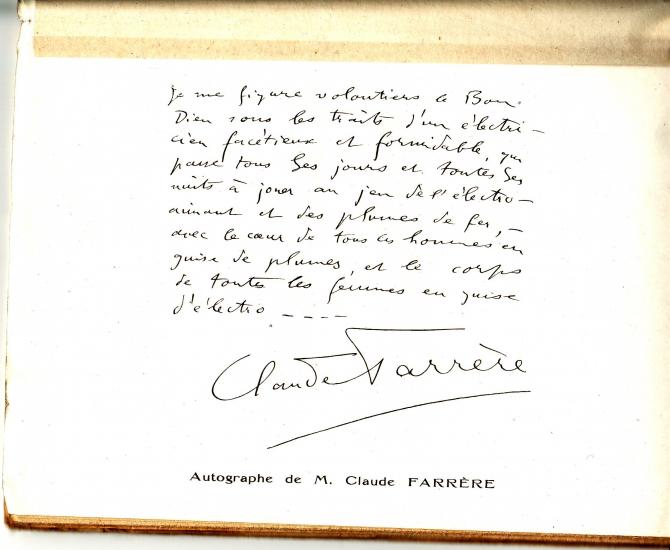 Je me figure volontiers le Bon-
Dieu sous les traits d'un électri-
cien facétieux et formidable, qui
passe tous Ses jours et toutes Ses
nuits à jouer au jeu de l'électro-
aimant et des plumes de fer, –
avec le cœur de tous les hommes en
guise de plumes, et le corps
de toutes les femmes en guise
d'électro ----
Claude Farrère
Autographe de M. Claude FARRÈRE